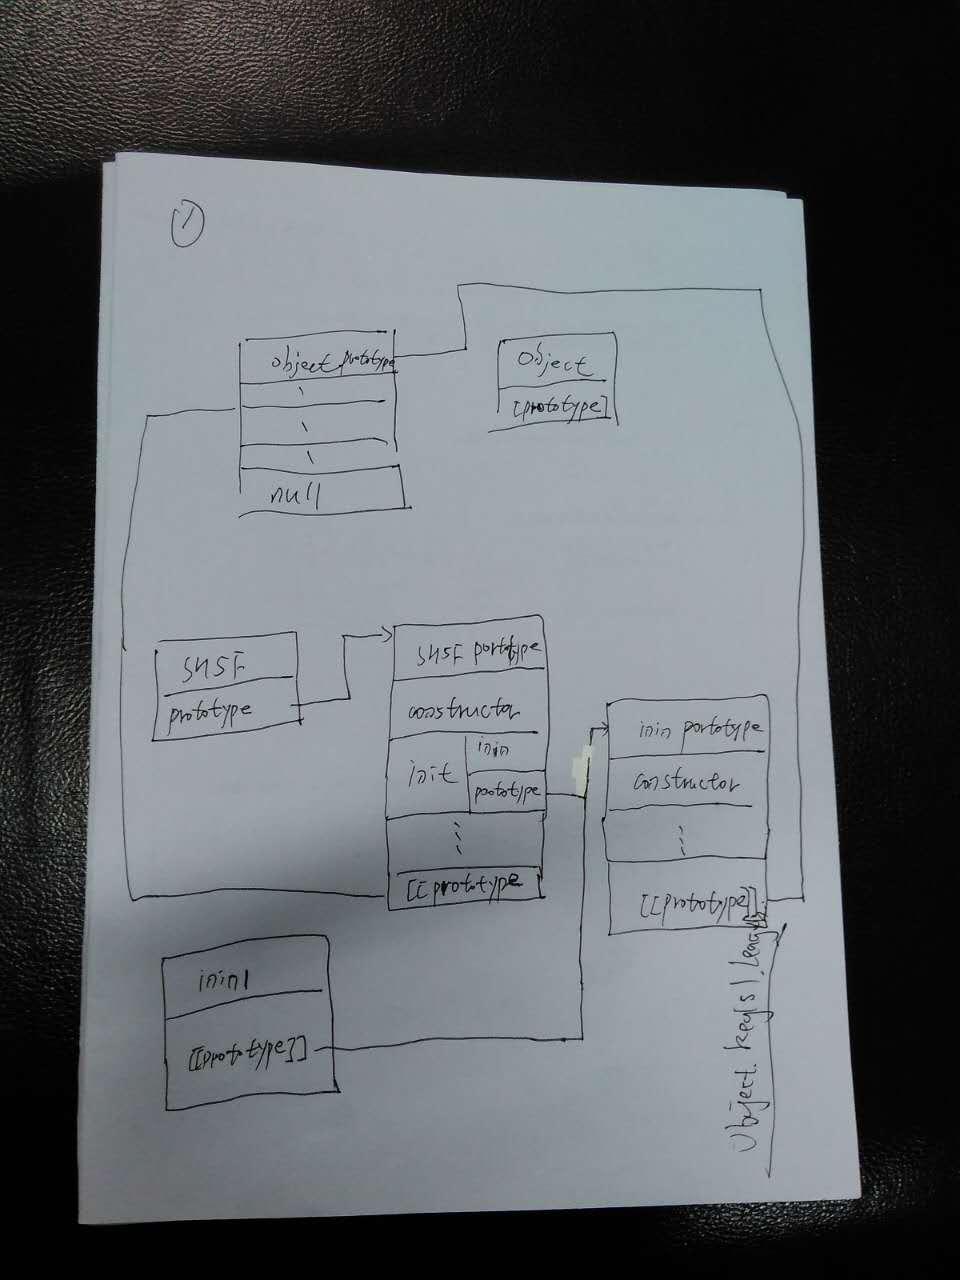 1
Object.prototype
null
Object
[prototype]
SHSF
prototype
SHSF portotype
constructor
init
inin
prototype
[[prototype
inin portotype
constructor
[[prototype]]
inin1
[[prototype]]